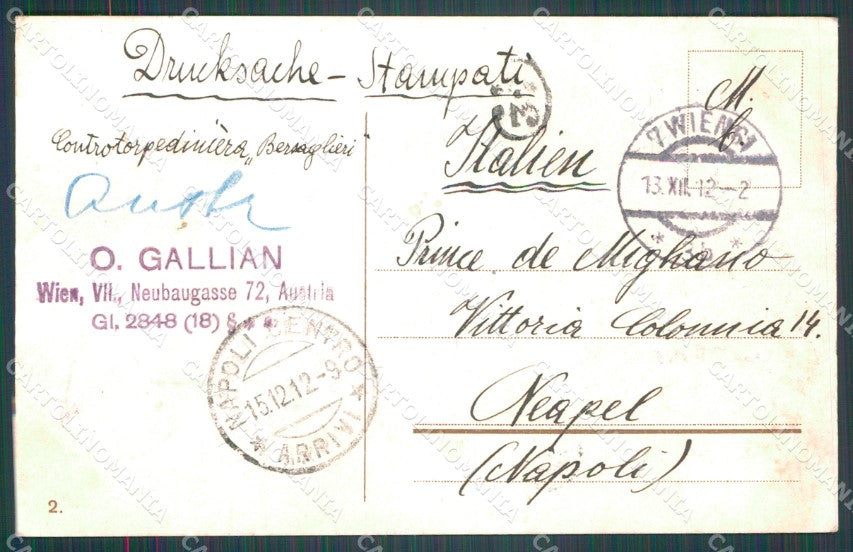 Drucksache - Stampati
M.
Controtorpediniera „Bersaglieri"
Italien
7 WIEN 61
13.XII.12-2
O. GALLIAN
Wien, VII., Neubaugasse 72, Austria
Gl. 2848 (18) 8 * *
Prince de Mighano
Vittoria Colonnia 14.
NAPOLI CENTRO
15.12.12-9
* ARRIVI *
Neapel
(Napoli)
2.
CARTOLINOMANIA